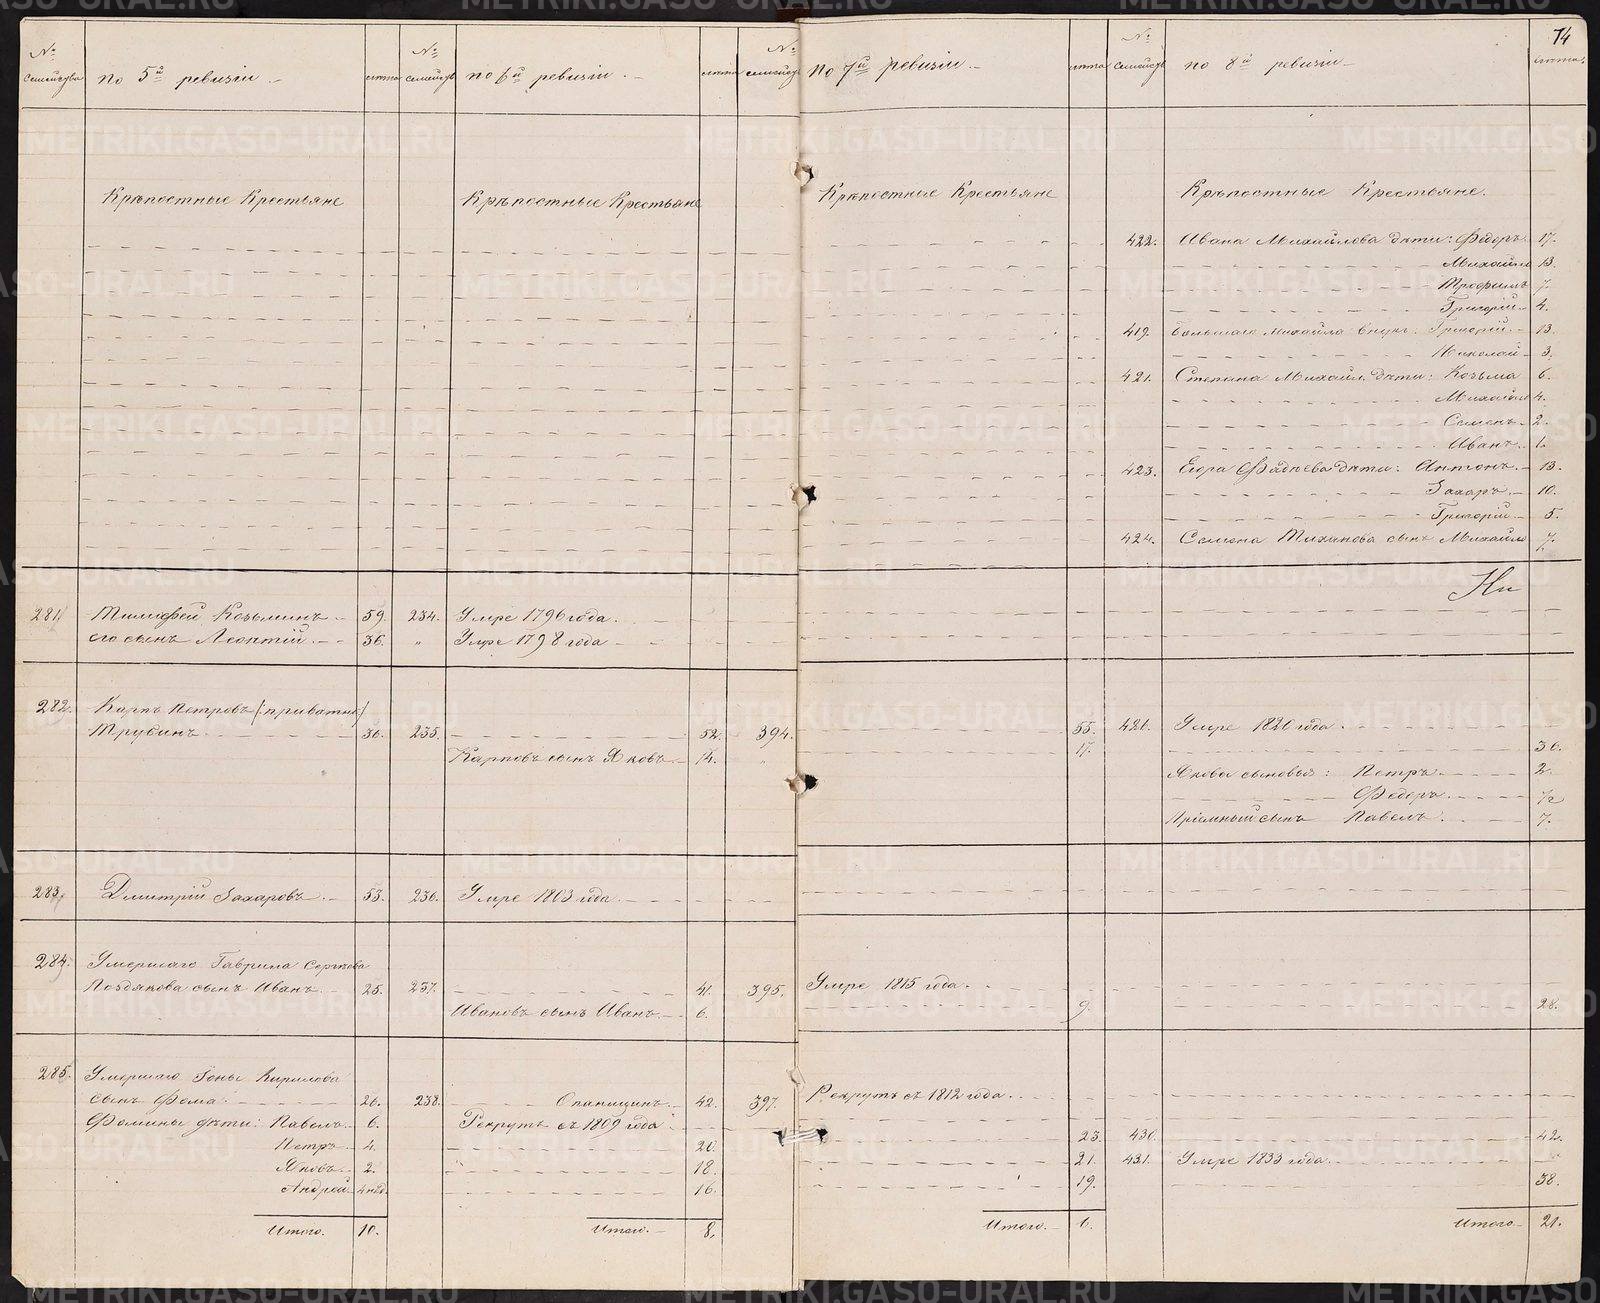 74
№ семейства по 5й ревизіи лѣта
№ семейств по 6й ревизіи лѣта
№ семейств по 7й ревизіи лѣта
№ семейств по 8й ревизіи лѣта
Крѣпостные Крестьяне Крѣпостные Крестьяне Крѣпостные Крестьяне Крѣпостные Крестьяне.
422. Ивана Михайлова дѣти: Федоръ 17.
Михайло 13.
Трофимъ 7.
Григорій 4.
419. Михайла внуки: Григорій 13.
Николай 3.
421. Степана Михайл. дѣти: Козьма 6.
Михайло 4.
Семенъ 2.
Иванъ 1.
423. Егора Фадѣева дѣти: Антонъ 13.
Захаръ 10.
Григорій 5.
424. Семена Тиханова сынъ Михайло 7.
281 Тимофей Козьминъ 59. 234. Умре 1796 года.
его сынъ Леонтій 36. " Умре 1798 года
282. Карпъ Петровъ (:приватно:)
Трубинъ 36. 235. 52. 394. 55. 421. Умре 1826 года.
Карповъ сынъ Яковъ 14. " 17. 36.
Якова сыновья: Петръ 2.
Федоръ 1/2
Пріемный сынъ Павелъ 7.
283. Дмитрій Захаровъ 53. 236. Умре 1803 года.
284. Умершаго Гаврила Сергѣева
Позднякова сынъ Иванъ 25. 237. 41. 395. Умре 1815 года.
Ивановъ сынъ Иванъ 6. 9. 28.
285. Умершаго Кирилова
сынъ Фома 26. 238. 42. 397. Рекрутъ съ 1812 года.
Фомины дѣти: Павелъ 6. Рекрутъ съ 1809 года
Петръ 4. 20. 23. 430. 42.
Яковъ 2. 18. 21. 431. Умре 1833 года.
Андрей 4 нед. 16. 19. 38.
Итого. 10. Итого. 8. Итого. 6. Итого 21.
METRIKI.GASO-URAL.RU